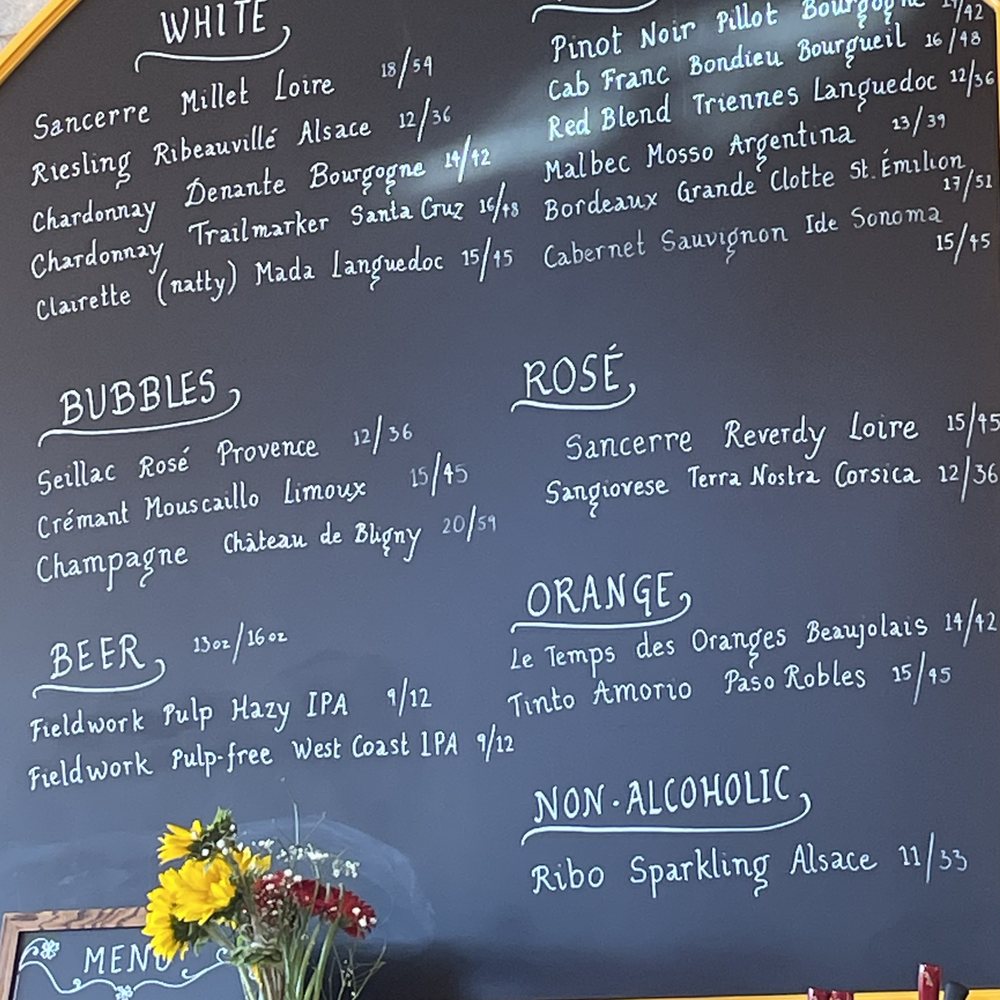 WHITE
Sancerre Millet Loire 18/54
Riesling Ribeauvillé Alsace 12/36
Chardonnay Denante Bourgogne 14/42
Chardonnay Trailmarker Santa Cruz 16/48
Clairette (natty) Mada Languedoc 15/45
Pinot Noir Pillot Bourgogne 14/42
Cab Franc Bondieu Bourgueil 16/48
Red Blend Triennes Languedoc 12/36
Malbec Mosso Argentina 13/39
Bordeaux Grande Clotte St. Émilion
17/51
Cabernet Sauvignon Ide Sonoma
15/45
BUBBLES
Seillac Rosé Provence 12/36
Crémant Mouscaillo Limoux 15/45
Champagne Château de Bligny 20/59
ROSÉ
Sancerre Reverdy Loire 15/45
Sangiovese Terra Nostra Corsica 12/36
BEER 13oz/16oz
Fieldwork Pulp Hazy IPA 9/12
Fieldwork Pulp-free West Coast IPA 9/12
ORANGE
Le Temps des Oranges Beaujolais 14/42
Tinto Amorio Paso Robles 15/45
NON-ALCOHOLIC
Ribo Sparkling Alsace 11/33
MENU